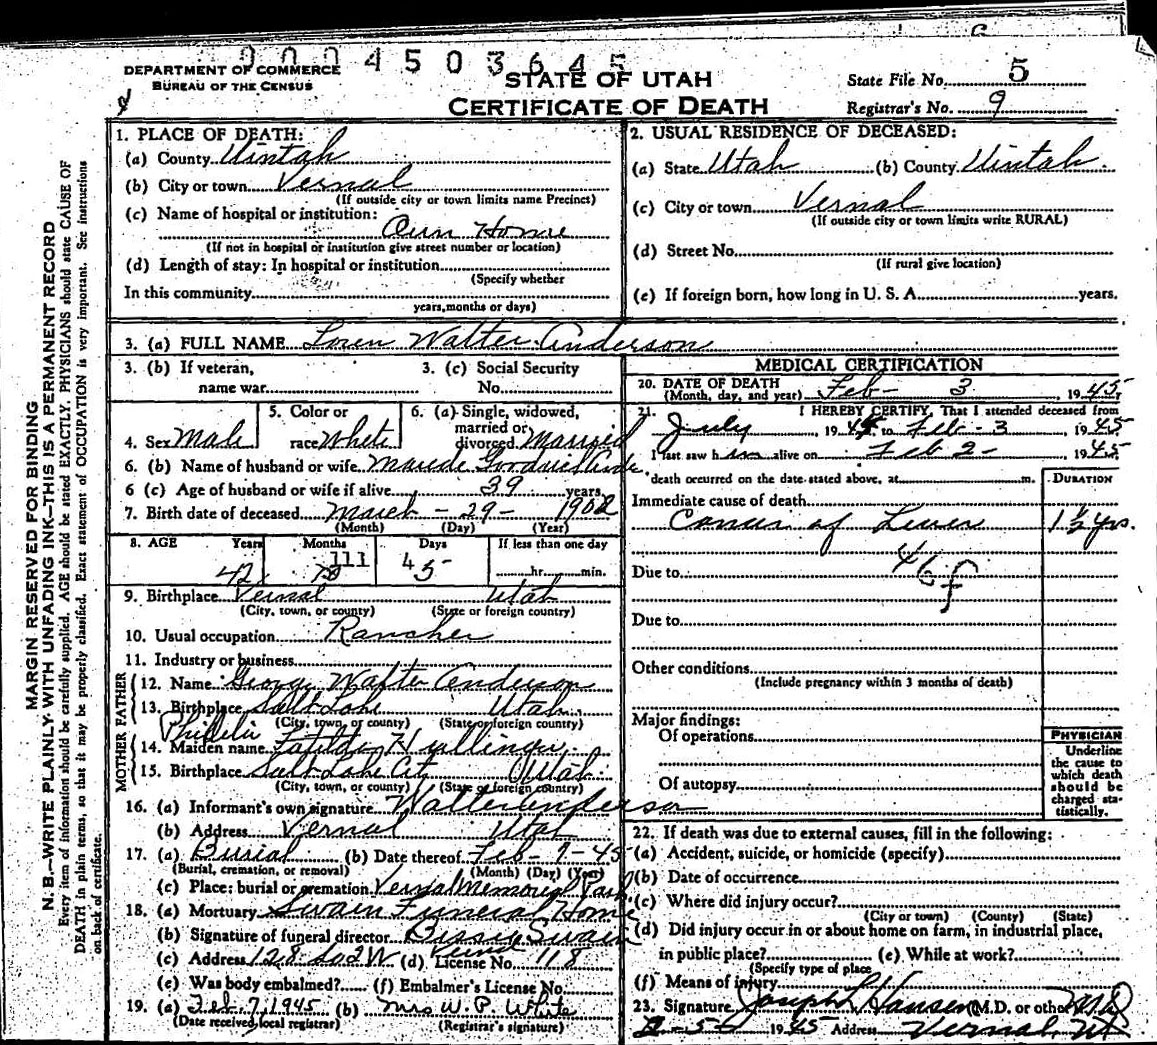 9004503645
DEPARTMENT OF COMMERCE
BUREAU OF THE CENSUS
STATE OF UTAH
CERTIFICATE OF DEATH
State File No. 5
Registrar's No. 9
MARGIN RESERVED FOR BINDING
N. B.—WRITE PLAINLY WITH UNFADING INK—THIS IS A PERMANENT RECORD
Every item of information should be carefully supplied. AGE should be stated EXACTLY. PHYSICIANS should state CAUSE OF
DEATH in plain terms, so that it may be properly classified. Exact statement of OCCUPATION is very important. See instructions
on back of certificate.
1. PLACE OF DEATH:
(a) County Uintah
(b) City or town Vernal
(If outside city or town limits name Precinct)
(c) Name of hospital or institution:
Own Home
(If not in hospital or institution give street number or location)
(d) Length of stay: In hospital or institution
(Specify whether
In this community
years, months or days)
2. USUAL RESIDENCE OF DECEASED:
(a) State Utah (b) County Uintah
(c) City or town Vernal
(If outside city or town limits write RURAL)
(d) Street No.
(If rural give location)
(e) If foreign born, how long in U. S. A. years.
3. (a) FULL NAME Loren Walter Anderson
3. (b) If veteran,
name war
3. (c) Social Security
No.
4. Sex Male
5. Color or
race White
6. (a) Single, widowed,
married or
divorced Married
6. (b) Name of husband or wife
6 (c) Age of husband or wife if alive 39 years
7. Birth date of deceased March - 29 - 1902
(Month) (Day) (Year)
8. AGE Years Months Days If less than one day
42 10 111 45 hr. min.
9. Birthplace Vernal Utah
(City, town, or county) (State or foreign country)
10. Usual occupation Rancher
11. Industry or business
FATHER
12. Name George Walter Anderson
13. Birthplace Salt Lake Utah
(City, town, or county) (State or foreign country)
MOTHER
14. Maiden name Hullinger
15. Birthplace Salt Lake City Utah
(City, town, or county) (State or foreign country)
16. (a) Informant's own signature Walter Anderson
(b) Address Vernal Utah
17. (a) Burial (b) Date thereof Feb - 7 - 45
(Burial, cremation, or removal) (Month) (Day) (Year)
(c) Place: burial or cremation Vernal Memorial Park
18. (a) Mortuary Swain Funeral Home
(b) Signature of funeral director Swain
(c) Address 128 So 2 W Vernal (d) License No. 118
(e) Was body embalmed? (f) Embalmer's License No.
19. (a) Feb 7, 1945 (b) Mrs W. P. White
(Date received local registrar) (Registrar's signature)
MEDICAL CERTIFICATION
20. DATE OF DEATH
(Month, day, and year) Feb - 3, 1945
21. I HEREBY CERTIFY, That I attended deceased from
July, 1944, to Feb - 3, 1945
I last saw him alive on Feb 2 -, 1945
death occurred on the date stated above, at m.
DURATION
Immediate cause of death
Cancer of Liver 1 1/2 yrs.
Due to 46 f
Due to
Other conditions
(Include pregnancy within 3 months of death)
Major findings:
Of operations
Of autopsy
PHYSICIAN
Underline
the cause to
which death
should be
charged sta-
tistically.
22. If death was due to external causes, fill in the following:
(a) Accident, suicide, or homicide (specify)
(b) Date of occurrence
(c) Where did injury occur?
(City or town) (County) (State)
(d) Did injury occur in or about home on farm, in industrial place,
in public place? (e) While at work?
(Specify type of place
(f) Means of injury
23. Signature Joseph L Hansen (M.D. or other) MD
2 - 5 - 1945 Address Vernal, Ut